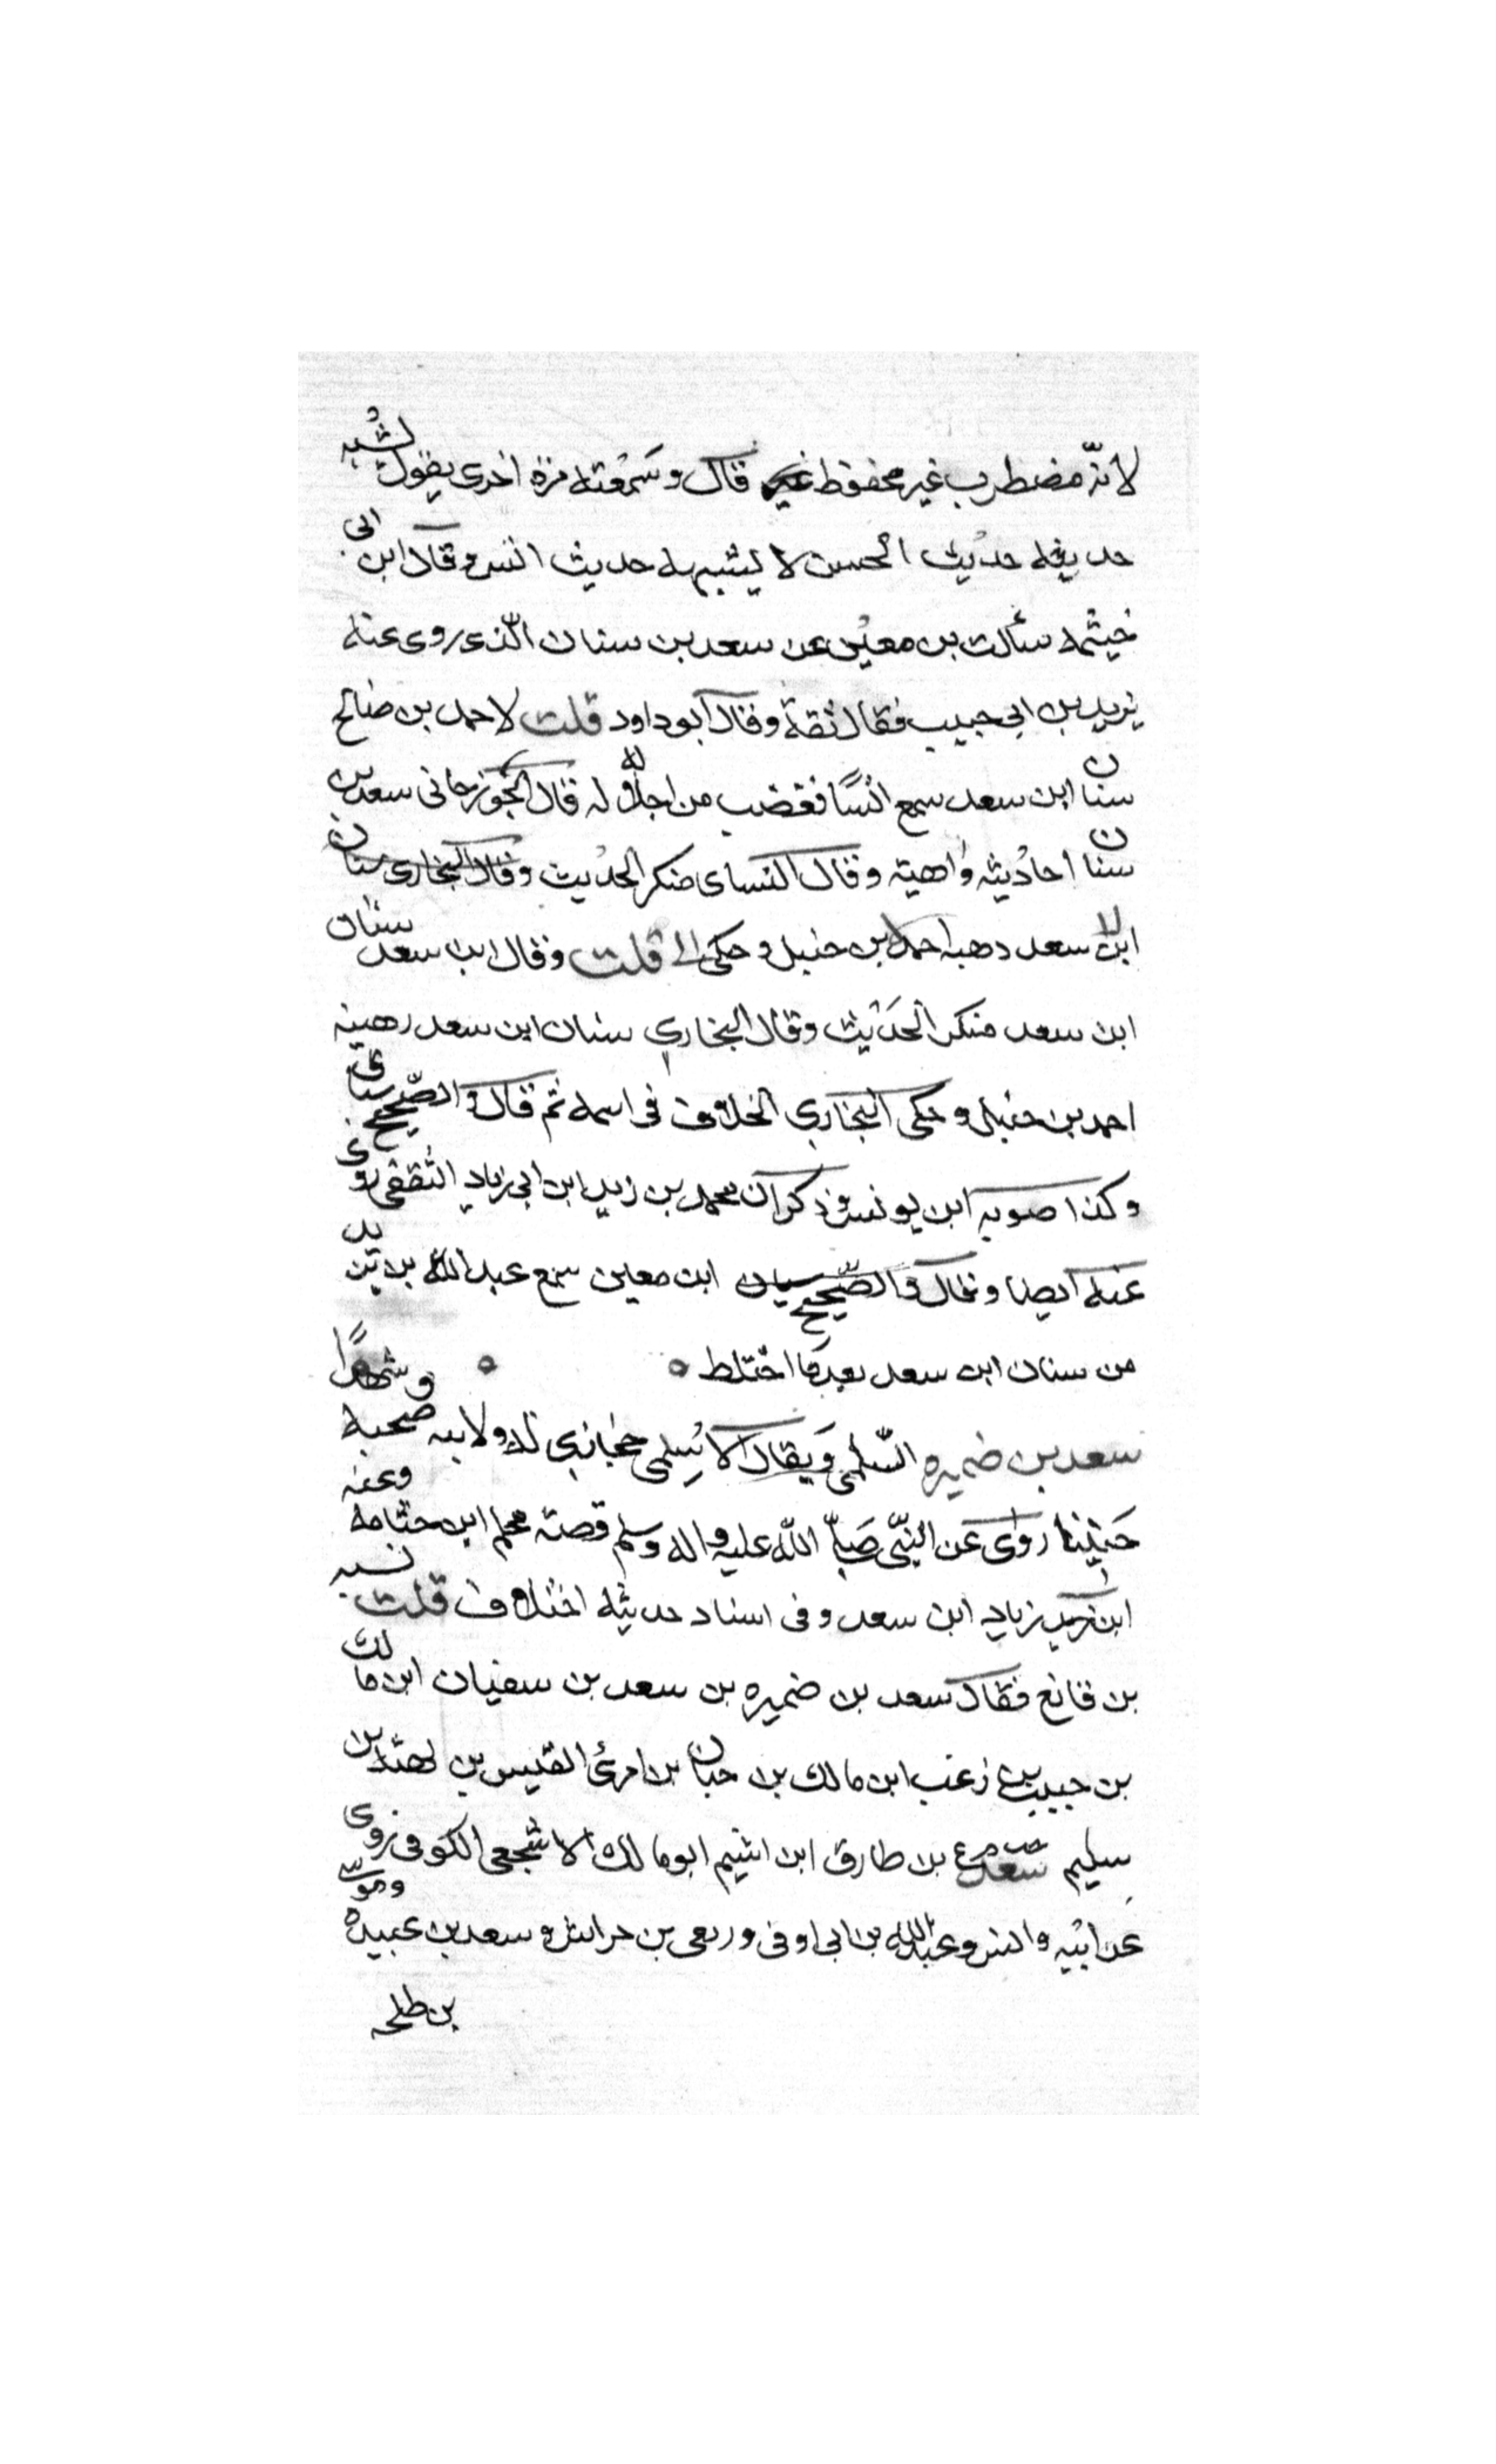 لانّه مضطرب غير محفوظ قال وسمعته مرة اخرى يقول يشبه
حديثه حديث الحسن لا يشبه حديث انس وقال ابن ابى
خيثمه سألت بن معين عن سعد بن سنان الّذى روى عنه
يزيد بن ابى حبيب فقال ثقة وقال ابو داود قلت لاحمد بن صالح
سنان ابن سعد سمع انسًا فغضب من اجلاله له قال الجوزجانى سعد بن
سنان احاديثه واهية وقال النساى منكر الحديث وقال البخارى سنان
ابن سعد وهبه احمد بن حنبل وحكى قلت وقال ابن سعد سنان
ابن سعد منكر الحديث وقال البخاري سنان ابن سعد وهبنه
احمد بن حنبل وحكى البخاري الخلاف فى اسمه ثم قال والصّحيح سنان
وكذا صوبه ابن يونس وذكر ان محمد بن زيد ابن ابى زياد الثقفى روى
عنه ايضا وقال والصّحيح سنان ابن معين سمع عبد الله بن يزيد
من سنان ابن سعد بعدما اختلط
سعد بن ضميره السّلمى ويقال الاسلمى حجازي له ولابيه صحبة وشهدا
حنينا روى عن النبّى صلّى الله عليه واله وسلم قصة محلم ابن جثامه وعنه
ابن زياد ابن سعد وفى اسناد حديثه اختلاف قلت نسبه
بن قانع فقال سعد بن ضميره بن سعد بن سفيان ابن مالك
بن حبيب بن زغب ابن مالك بن حبان بن امرئ القيس بن بهثه بن
سليم سعد بن طارق ابن اشيم ابو مالك الاشجعى الكوفى روى
عن ابيه وانس وعبد الله بن ابى اوفى وربعى بن حراش وسعد بن عبيده وموسى
بن طلحه